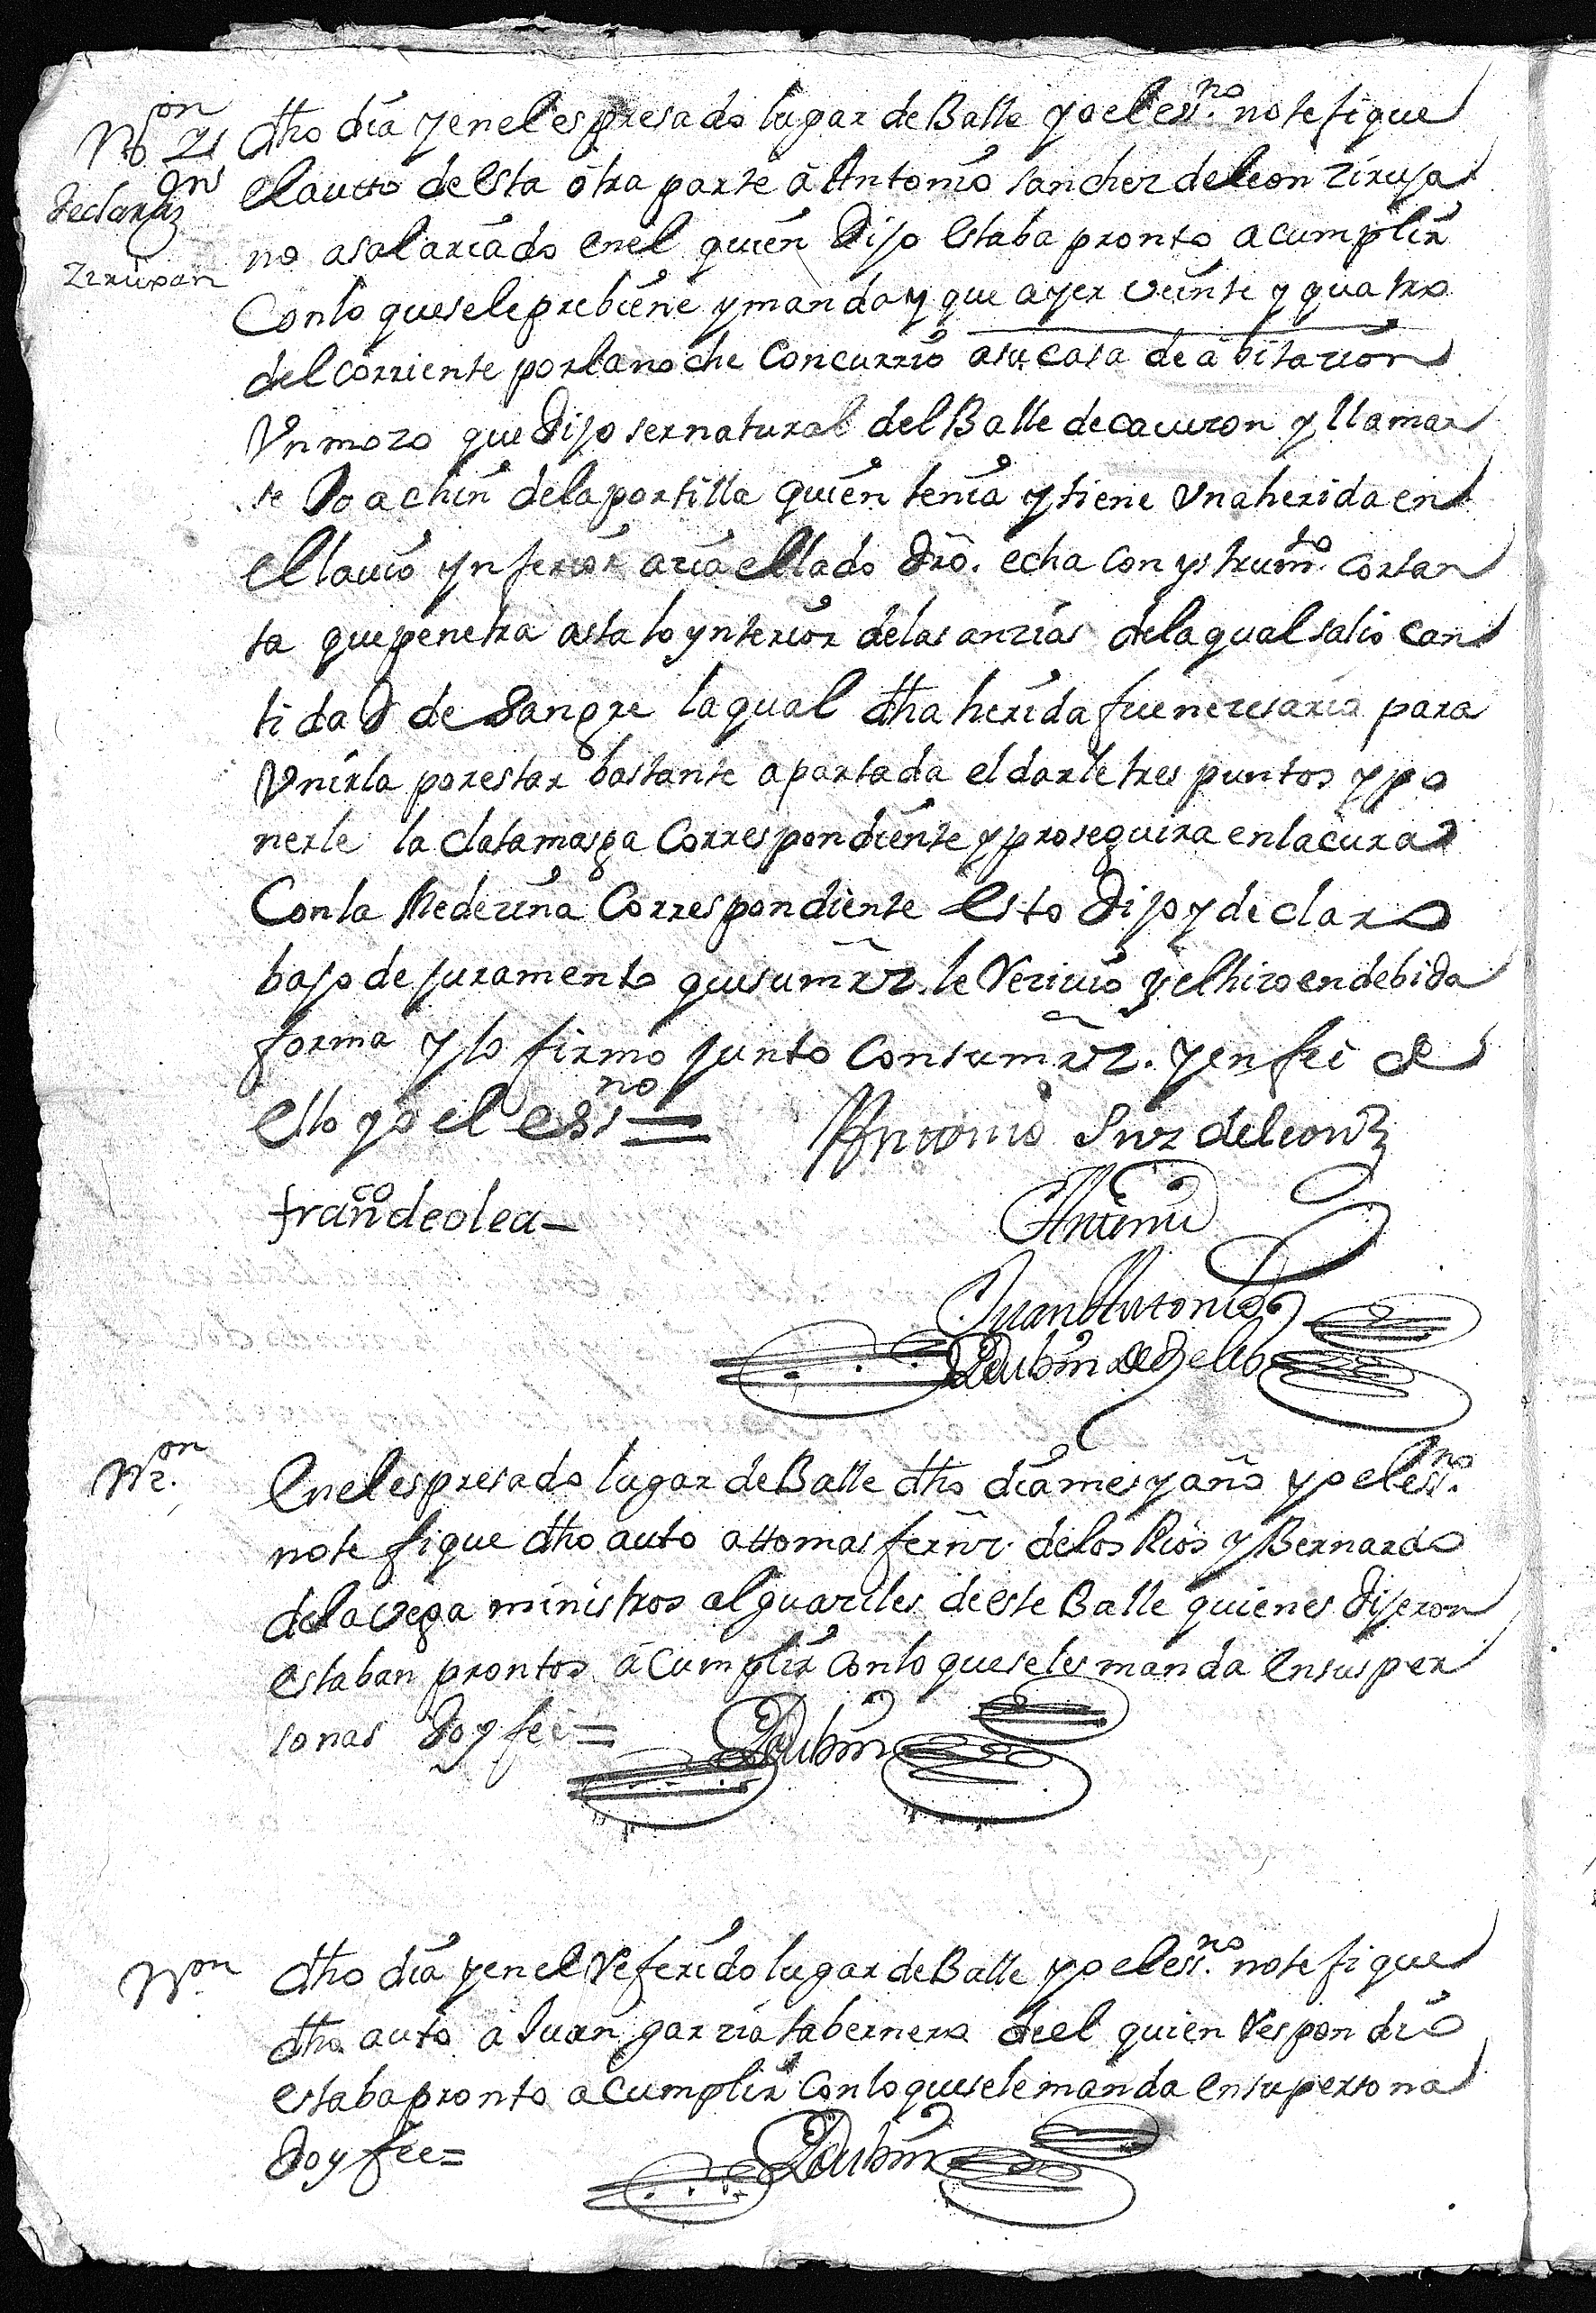 No.on y
declaraz.on
zirujan
dho dia y en el espresado lugar de Balle yo el ess.no notefique
el autto de esta otra parte a Antonio sanchez de leon ziruja
no asalariado en el quien Dijo estaba pronto a cumplir
Con lo que se le prebiene y manda y que ayer veinte y quatro
del corriente por la noche Concurrio a su casa de abitazion
Vn mozo que Dijo ser natural del Balle de cavuezon y llamar
se Joachin de la portilla quien tenia y tiene Vna herida en
el lavio ynferior azia el lado dro. echa con ystrum.to cortan
ta que penetra asta lo ynterior de las anzias de la qual salio can
tidad de sangre la qual dha herida fue nezesaria para
Vnirla por estar bastante apartada el darle tres puntos y po
nerle la datamasga Correspondiente y proseguira en la cura
Con la Medezina Correspondiente esto Dijo y declaro
bajo de juramento que su mrz. le Rezivio y el hizo en debida
forma y lo firmo junto con su mrz. y en fee de
ello yo el ess.no =
Antonio Snz de leon
fran.co de olea
Antemi
Juan Antonio
Rubin de Zelis
N.on
En el espresado lugar de Balle dho dia mes y año yo el ess.no
notefique dho auto a ttomas fernz. de los Rios y Bernardo
de la vega ministros alguaziles de este Balle quienes Dijeron
estaban prontos a Cumplir con lo que se les manda en sus per
sonas Doy fee =
Rubin
N.on
dho dia y en el Referido lugar de Balle yo el ess.no notefique
dho auto a Juan garzia tabernero de el quien Respondio
estaba pronto a cumplir con lo que se le manda en su persona
Doy fee =
Rubin